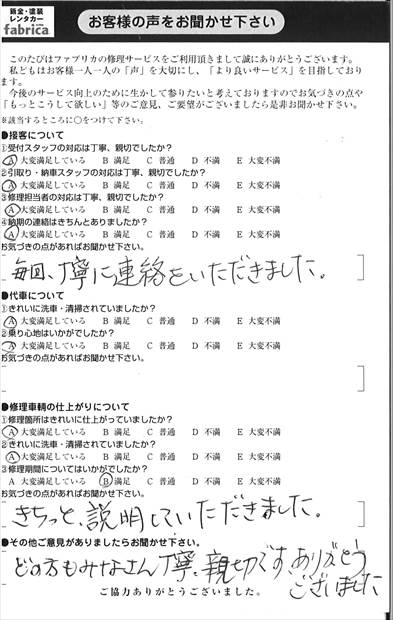 鈑金・塗装
レンタカー
fabrica
お客様の声をお聞かせ下さい
このたびはファブリカの修理サービスをご利用頂きまして誠にありがとうございます。
私どもはお客様一人一人の「声」を大切にし、「より良いサービス」を目指しており
ます。
今後のサービス向上のために生かして参りたいと考えておりますのでお気づきの点や
「もっとこうして欲しい」等のご意見、ご要望がございましたら是非お聞かせ下さい。
※該当するところに○をつけて下さい。
●接客について
①受付スタッフの対応は丁寧、親切でしたか？
A 大変満足している B 満足 C 普通 D 不満 E 大変不満
②引取り・納車スタッフの対応は丁寧、親切でしたか？
A 大変満足している B 満足 C 普通 D 不満 E 大変不満
③修理担当者の対応は丁寧、親切でしたか？
A 大変満足している B 満足 C 普通 D 不満 E 大変不満
④納期の連絡はきちんとありましたか？
A 大変満足している B 満足 C 普通 D 不満 E 大変不満
お気づきの点があればお聞かせ下さい。
毎回、丁寧に連絡をいただきました。
●代車について
①きれいに洗車・清掃されていましたか？
A 大変満足している B 満足 C 普通 D 不満 E 大変不満
②乗り心地はいかがでしたか？
A 大変満足している B 満足 C 普通 D 不満 E 大変不満
お気づきの点があればお聞かせ下さい。
●修理車輌の仕上がりについて
①修理箇所はきれいに仕上がっていましたか？
A 大変満足している B 満足 C 普通 D 不満 E 大変不満
②きれいに洗車・清掃されていましたか？
A 大変満足している B 満足 C 普通 D 不満 E 大変不満
③修理期間についてはいかがでしたか？
A 大変満足している B 満足 C 普通 D 不満 E 大変不満
お気づきの点があればお聞かせ下さい。
きちっと、説明していただきました。
●その他ご意見がありましたらお聞かせ下さい。
どの方もみなさん丁寧、親切です。ありがとう
ございました
ご協力ありがとうございました。